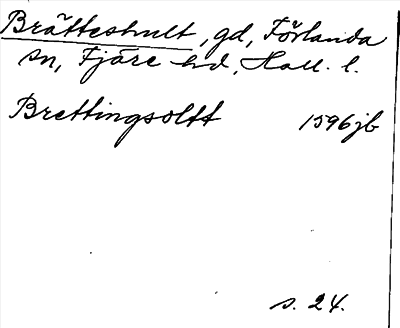 Brätteshult, gd, Förlanda
sn, Fjäre hd, Hall. l.
Brettingsoltt 1596 jb
s. 24.